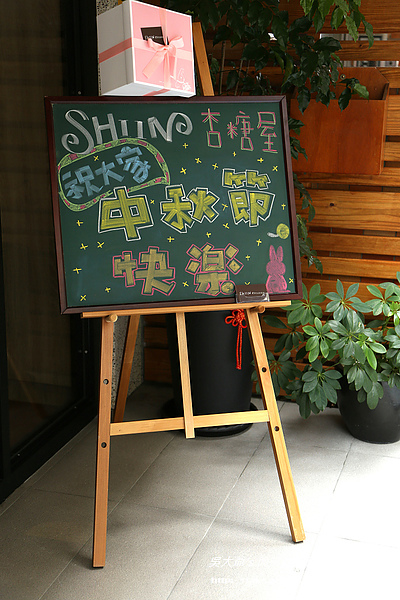 SHUN 杏糖屋
祝大家
中秋節
快樂